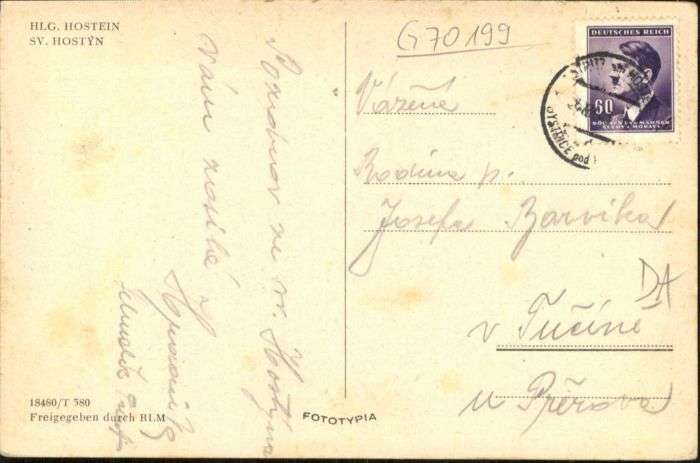 HLG. HOSTEIN
SV. HOSTÝN
G70199
DEUTSCHES REICH
60
BÖHMEN UND MÄHREN
ČECHY A MORAVA
BYSTŘICE pod
Pozdrav ze sv. Hostýna
Vám zasílá
Vážená
Rodina p.
Josefa Barvíka
DA
v Tučíně
u Přerova
18480/T 580
Freigegeben durch RLM
FOTOTYPIA